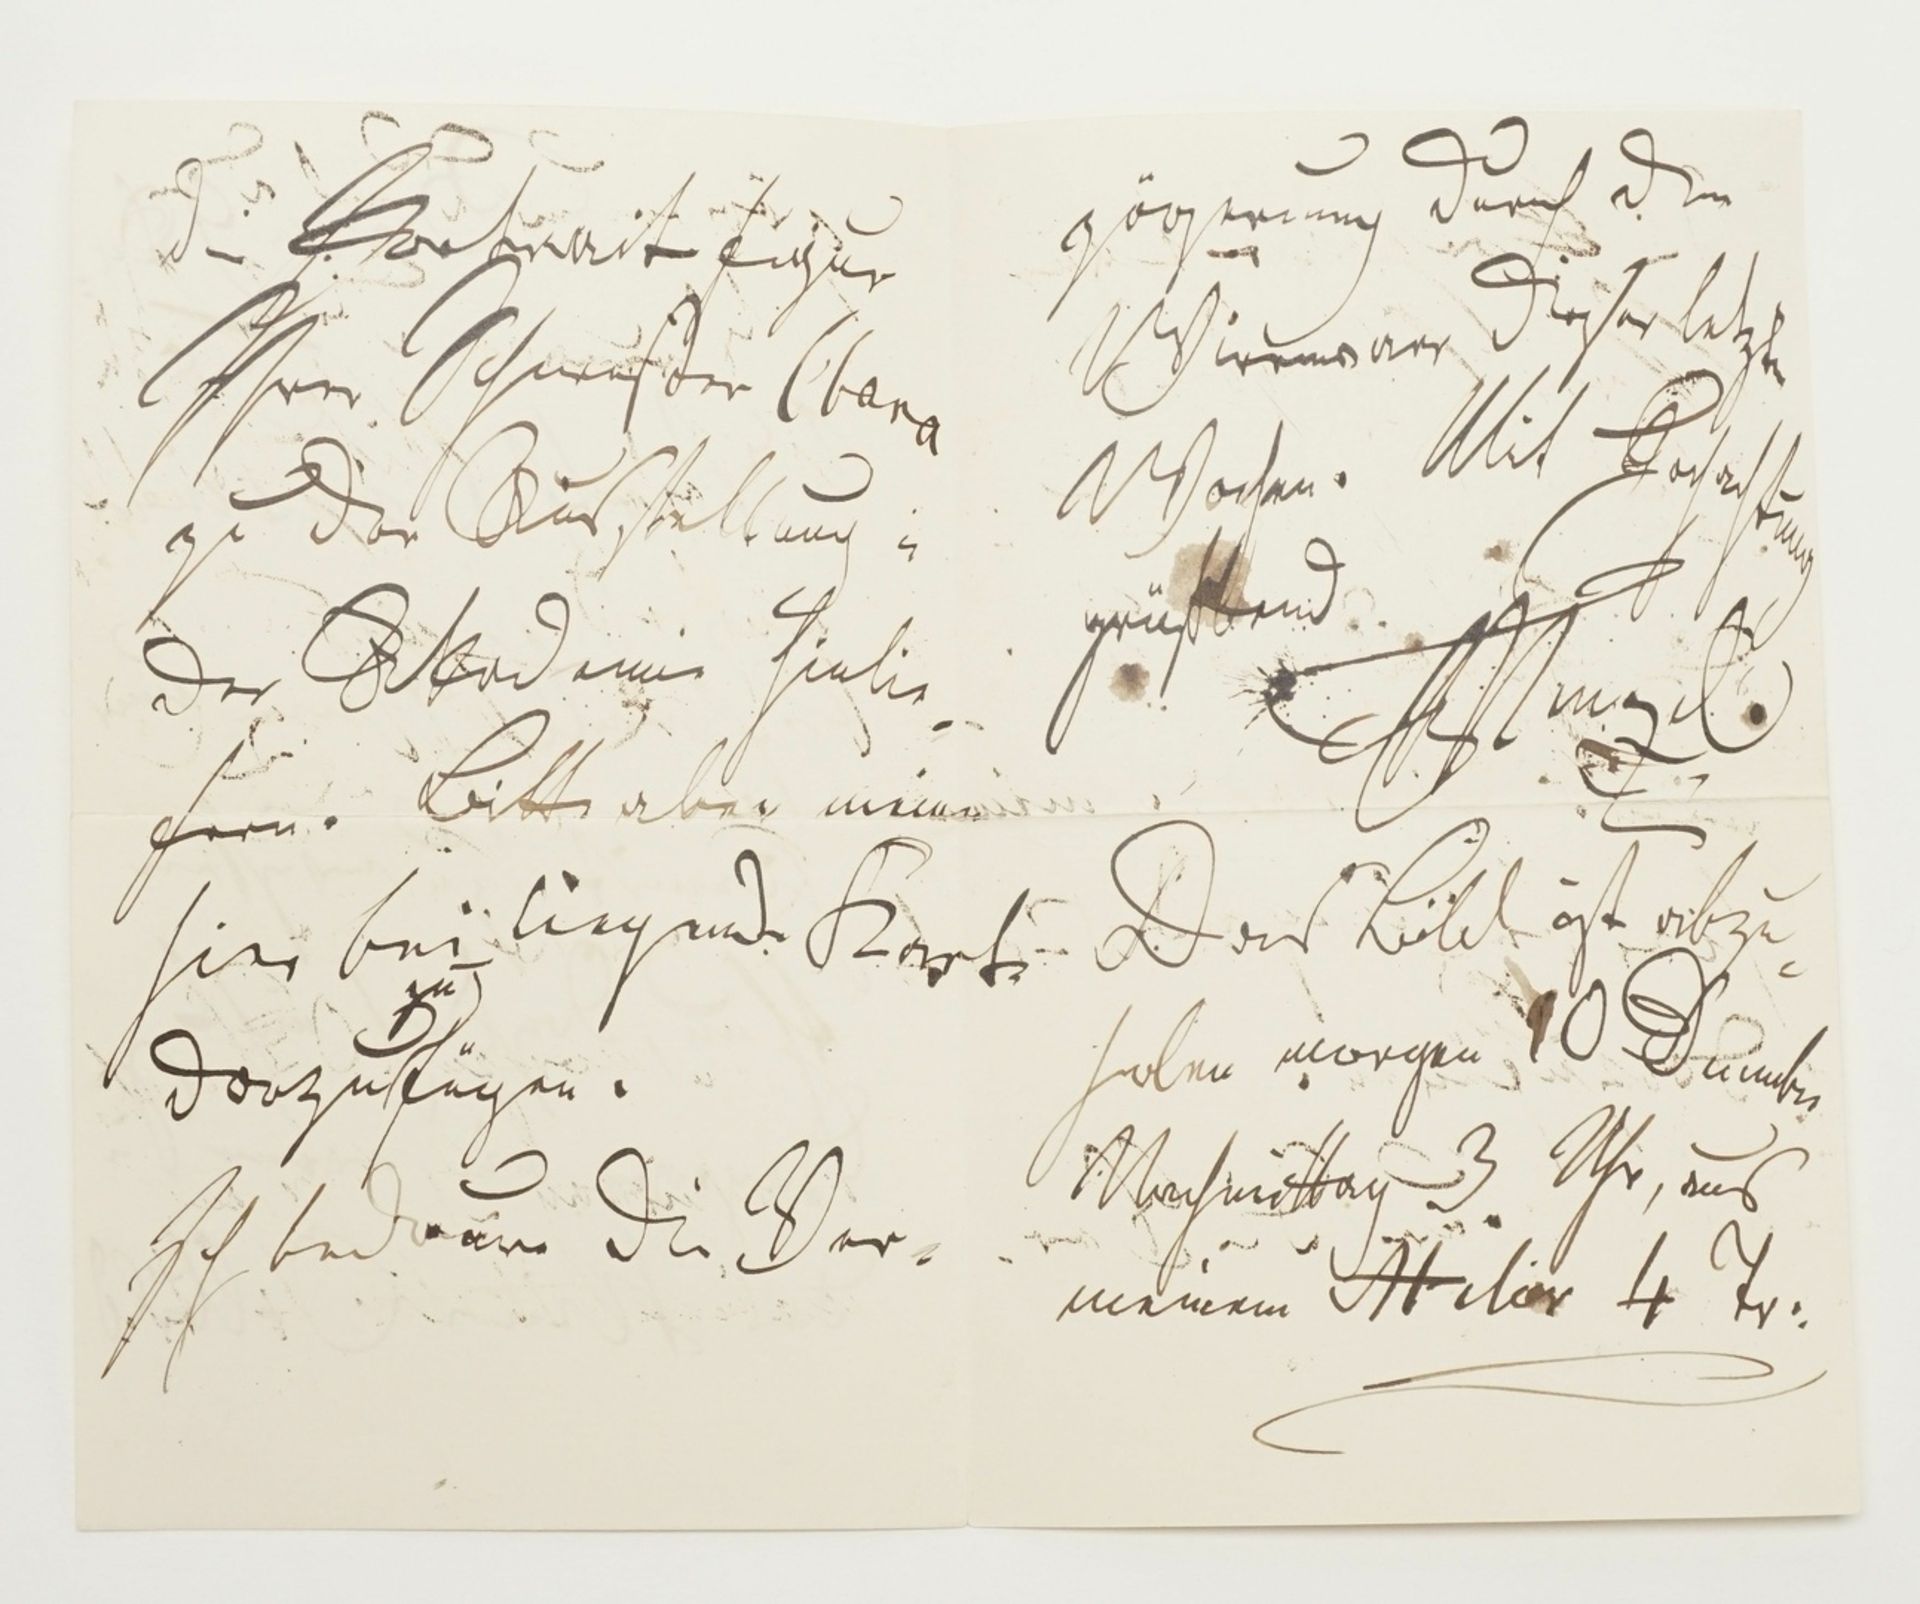 die Portrait figur
Ihrer Schwester Clara
zu der Ausstellung i
der Akademie hinlie-
fern. Bitte aber meine
hier bei liegende Karte
dazuzufügen.
Ich bedaure die Ver-
zögerung durch den
Wirrwarr dieser letzten
Wochen. Mit Hochachtung
grüßend
Menzel
Das Bild ist abzu-
holen morgen 10 Dezember
Nachmittag 3 Uhr, aus
meinem Atelier 4 Tr: